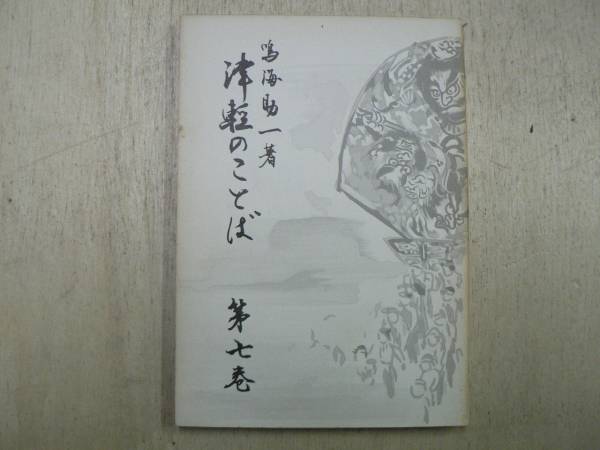 鳴海助一著
津軽のことば
第七巻